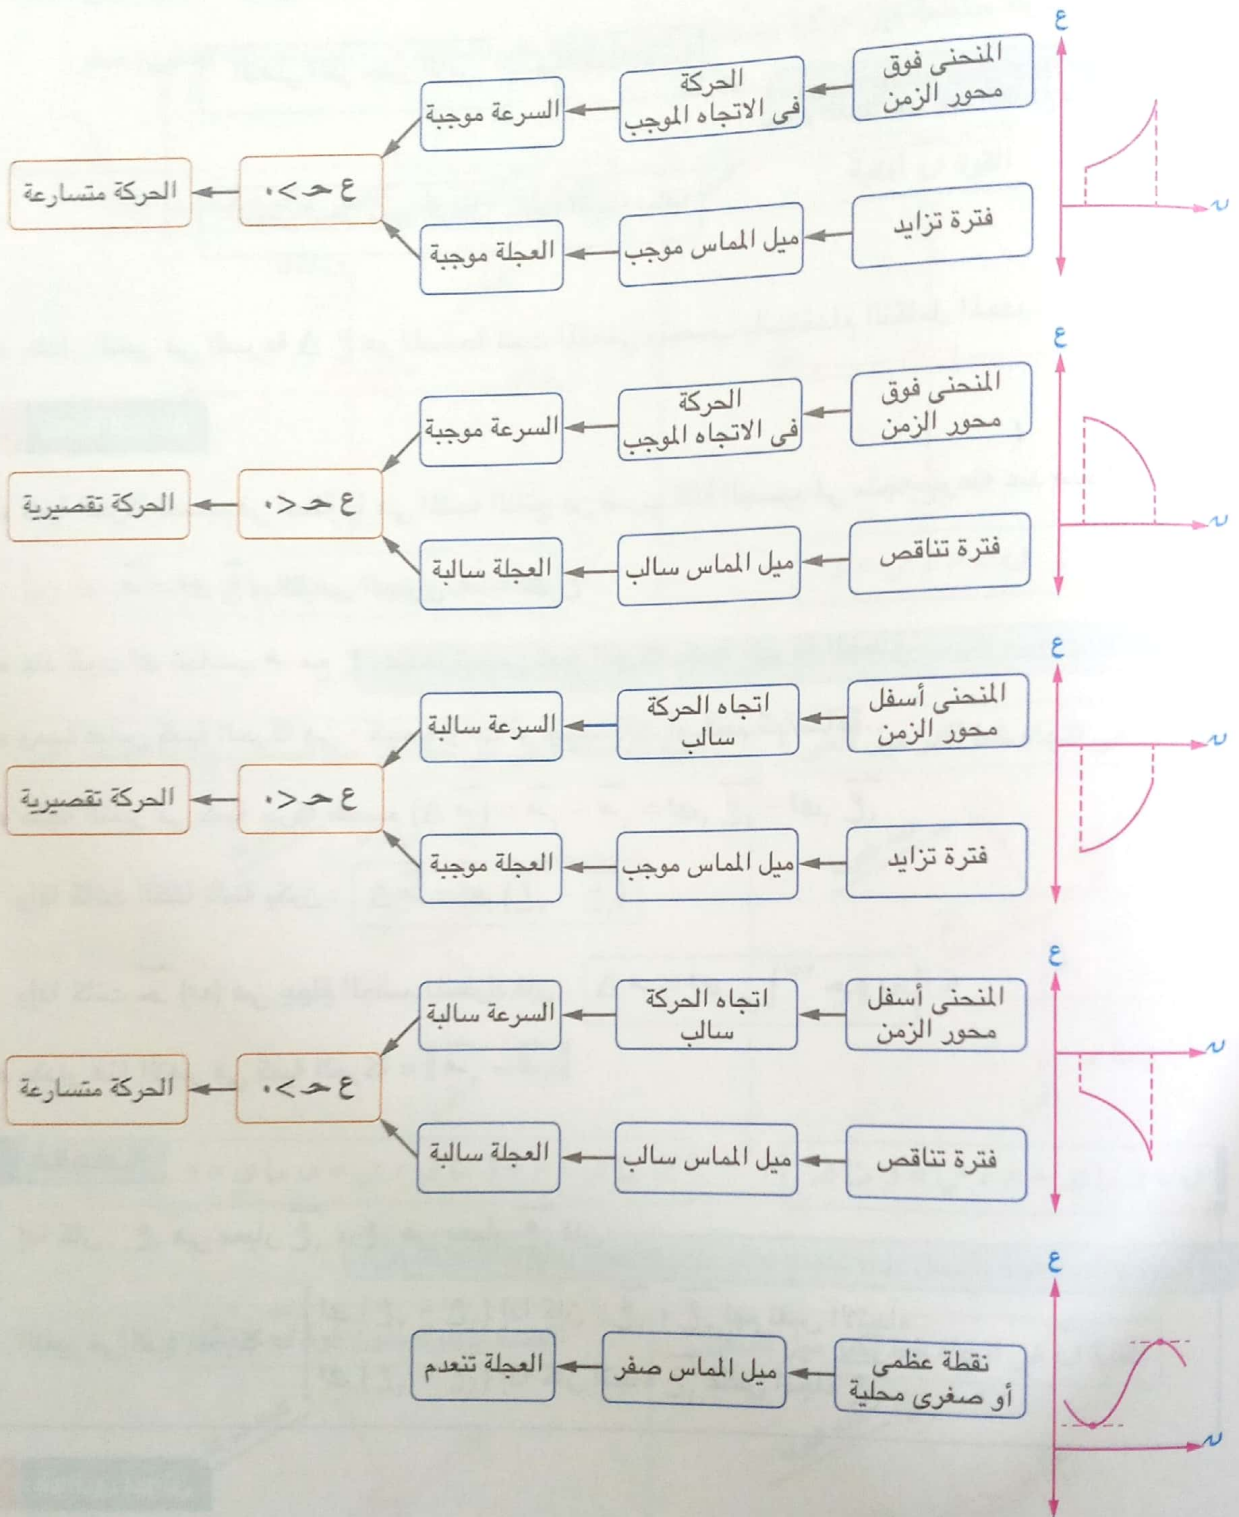 ع
المنحنى فوق
محور الزمن
الحركة
فى الاتجاه الموجب
السرعة موجبة
فترة تزايد
ميل المماس موجب
العجلة موجبة
ع حـ > ٠
الحركة متسارعة
ن
ع
المنحنى فوق
محور الزمن
الحركة
فى الاتجاه الموجب
السرعة موجبة
فترة تناقص
ميل المماس سالب
العجلة سالبة
ع حـ < ٠
الحركة تقصيرية
ن
ع
المنحنى أسفل
محور الزمن
اتجاه الحركة
سالب
السرعة سالبة
فترة تزايد
ميل المماس موجب
العجلة موجبة
ع حـ < ٠
الحركة تقصيرية
ن
ع
المنحنى أسفل
محور الزمن
اتجاه الحركة
سالب
السرعة سالبة
فترة تناقص
ميل المماس سالب
العجلة سالبة
ع حـ > ٠
الحركة متسارعة
ن
ع
نقطة عظمى
أو صغرى محلية
ميل المماس صفر
العجلة تنعدم
ن